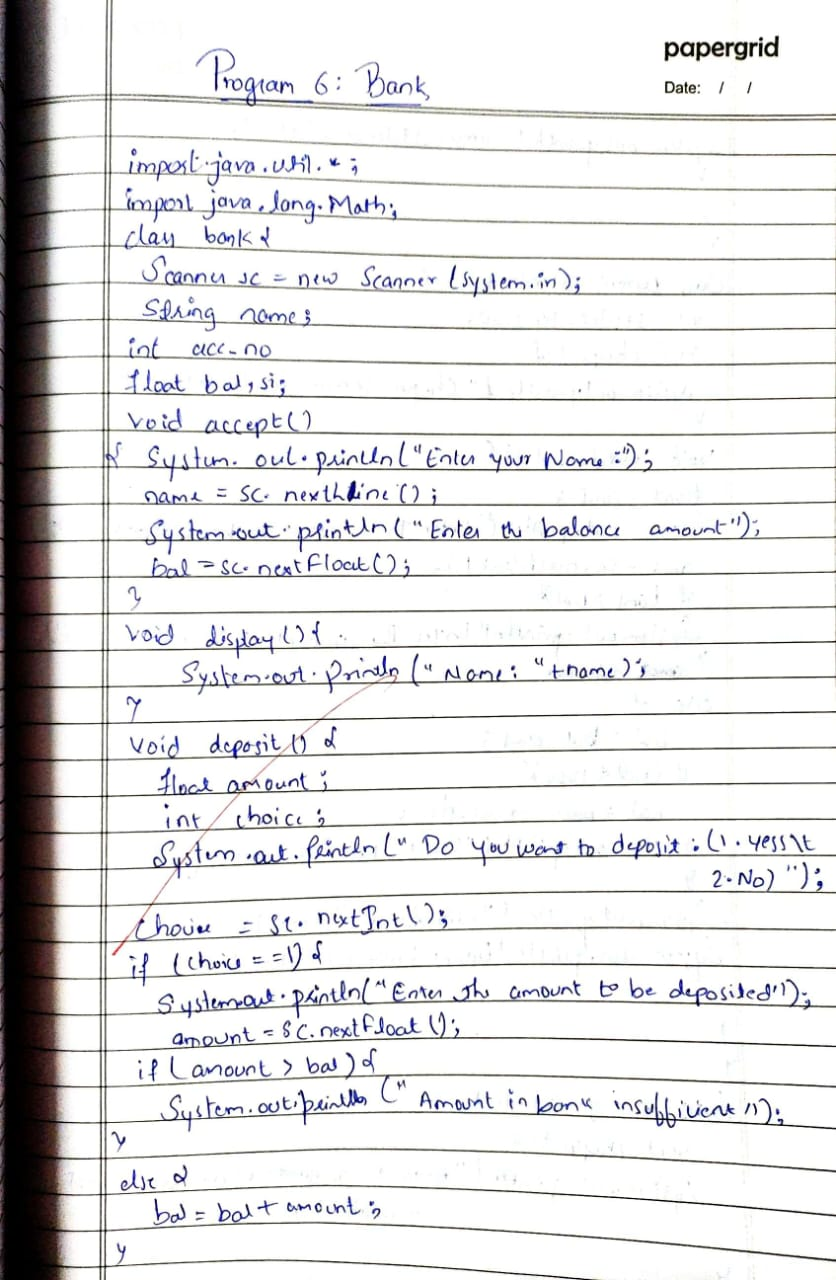 papergrid
Date: / /
Program 6: Bank
import java.util.*;
import java.lang.Math;
class bank{
Scanner sc = new Scanner (system.in);
String name;
int acc-no
float bal, si;
void accept()
{ System. out. println("Enter your Name :");
name = sc. nextLine ();
System.out. println ("Enter the balance amount");
bal = sc. next Float();
}
void display () {
System.out. println (" Name: "+name);
}
void deposit () {
float amount;
int choice;
System.out. println (" Do you want to deposit : (1. yess\t
2. No) ");
choice = sc. nextInt();
if (choice == 1) {
System.out. println("Enter the amount to be deposited");
amount = sc. nextfloat ();
if (amount > bal) {
System.out. println (" Amount in bank insufficient ");
}
else {
bal = bal + amount;
}